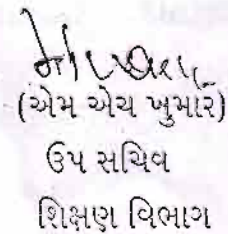 (એમ એચ ખુમાર)
ઉપ સચિવ
શિક્ષણ વિભાગ